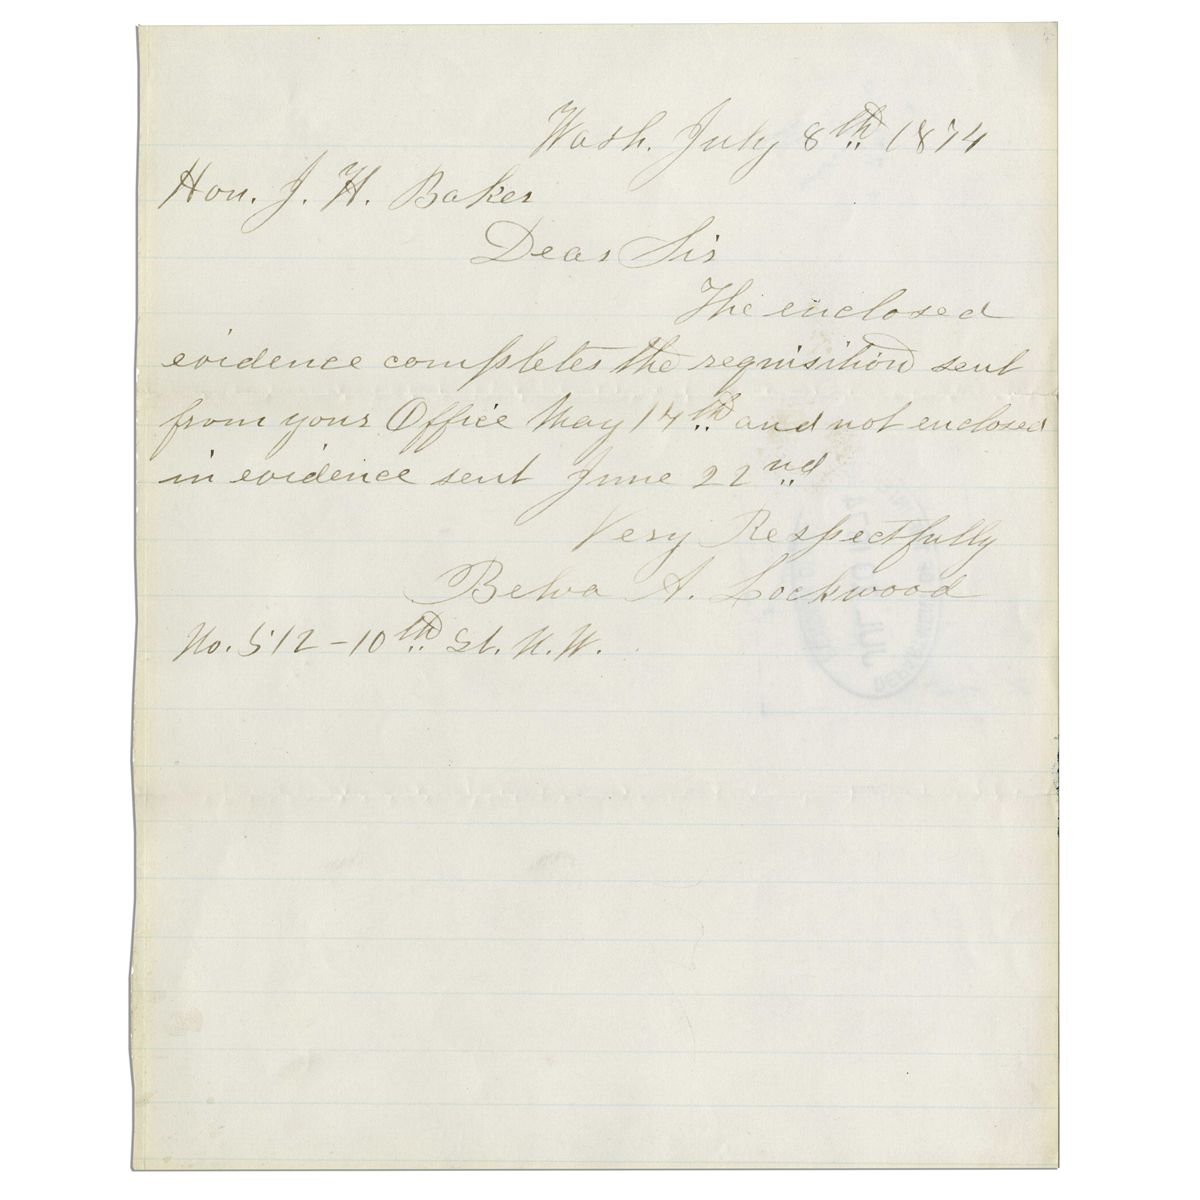 Wash. July 8th 1874
Hon. J. H. Baker
Dear Sir
The enclosed
evidence completes the requisition sent
from your Office May 14th and not enclosed
in evidence sent June 22nd
Very Respectfully
Belva A. Lockwood
No. 512 - 10th St. N. W.